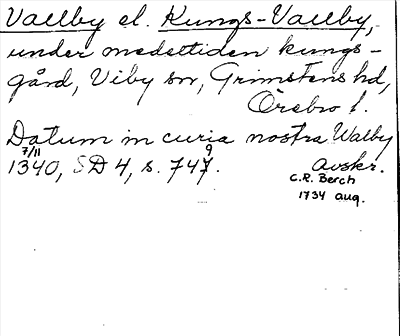 Vallby el. Kungs-Vallby,
under medeltiden kungs-
gård, Viby sn, Grimstens hd,
Örebro l.
Datum in curia nostra Walby
7/11 1340, SD 4, s. 747. 9
Avskr.
C.R. Berch
1734 aug.